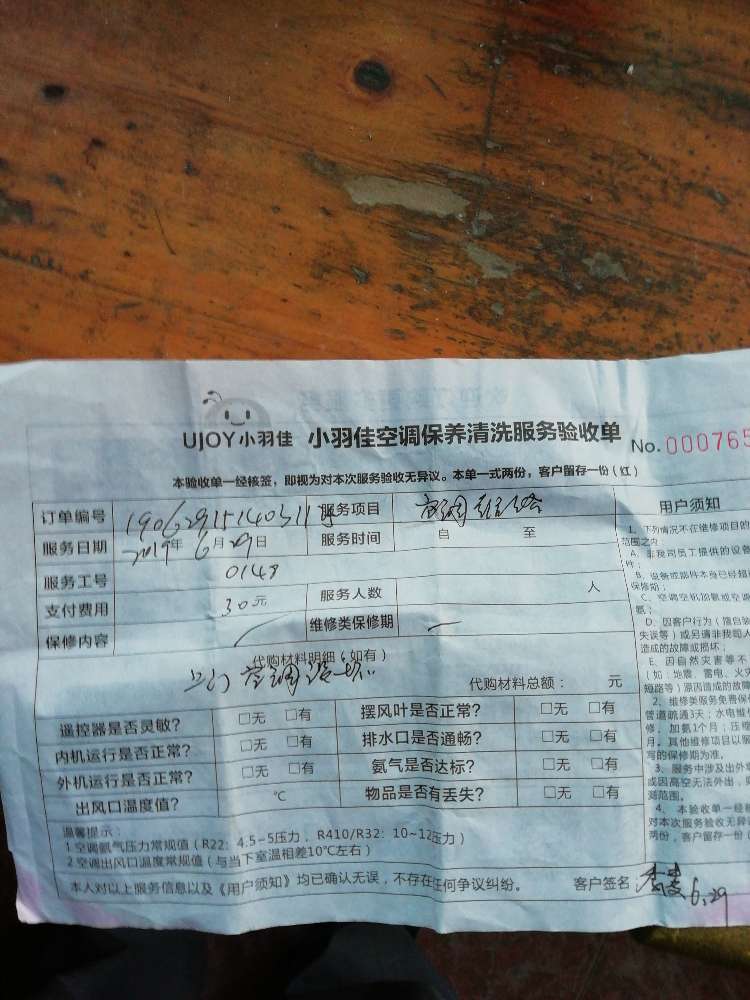 UJOY小羽佳 小羽佳空调保养清洗服务验收单 No.000765
本验收单一经核签，即视为对本次服务验收无异议。本单一式两份，客户留存一份（红）
订单编号 服务项目 空调 用户须知
服务日期 2019年6月29日 服务时间 自 至
服务工号 0148
支付费用 30元 服务人数 人
保修内容 维修类保修期
代购材料明细（如有）
上门空调 代购材料总额： 元
遥控器是否灵敏？ □无 □有 摆风叶是否正常？ □无 □有
内机运行是否正常？ □无 □有 排水口是否通畅？ □无 □有
外机运行是否正常？ □无 □有 氨气是否达标？ □无 □有
出风口温度值？ ℃ 物品是否有丢失？ □无 □有
温馨提示：
1空调氨气压力常规值（R22：4.5-5压力，R410/R32：10~12压力）
2空调出风口温度常规值（与当下室温相差10℃左右）
本人对以上服务信息以及《用户须知》均已确认无误，不存在任何争议纠纷。 客户签名 6.29
1、下列情况不在维修项目的
范围之内：
A、非我司员工提供的设备
件；
B、设备或部件本身已经超
保修期；
C、空调空机加氨或空调
氨；
D、因客户行为（擅自
失误等）或另请非我司人
造成的故障或损坏；
E、因自然灾害等不
（如：地震、雷电、火灾
短路等）原因造成的故障
2、维修类服务免费保
管道疏通3天；水电维
修、加氨1个月；压缩
月。其他维修项目以服
写的保修期为准。
3、服务中涉及出外
或因高空无法外出，
测范围。
4、本验收单一经
对本次服务验收无异
两份，客户留存一份